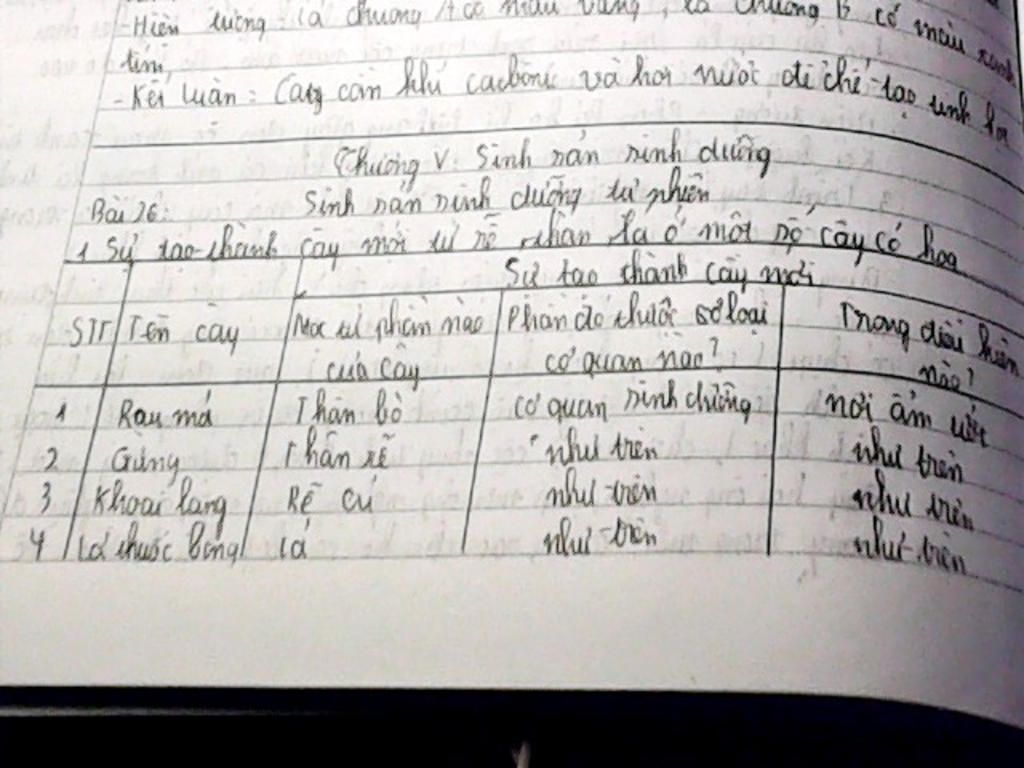 -Hiện tượng: lá chuông A có màu vàng, lá chuông B có màu xanh
tím,
-Kết luận: Cây cần khí cacbonic và hơi nước để chế tạo tinh bột
Chương V: Sinh sản sinh dưỡng
Bài 26: Sinh sản sinh dưỡng tự nhiên
1 Sự tạo thành cây mới từ rễ, thân, lá ở một số cây có hoa
Sự tạo thành cây mới
STT Tên cây Mọc từ phần nào của cây Phần đó thuộc loại cơ quan nào? Trong điều kiện nào?
1 Rau má Thân bò cơ quan sinh dưỡng nơi ẩm ướt
2 Gừng Thân rễ như trên như trên
3 Khoai lang Rễ củ như trên như trên
4 Lá thuốc bỏng lá như trên như trên